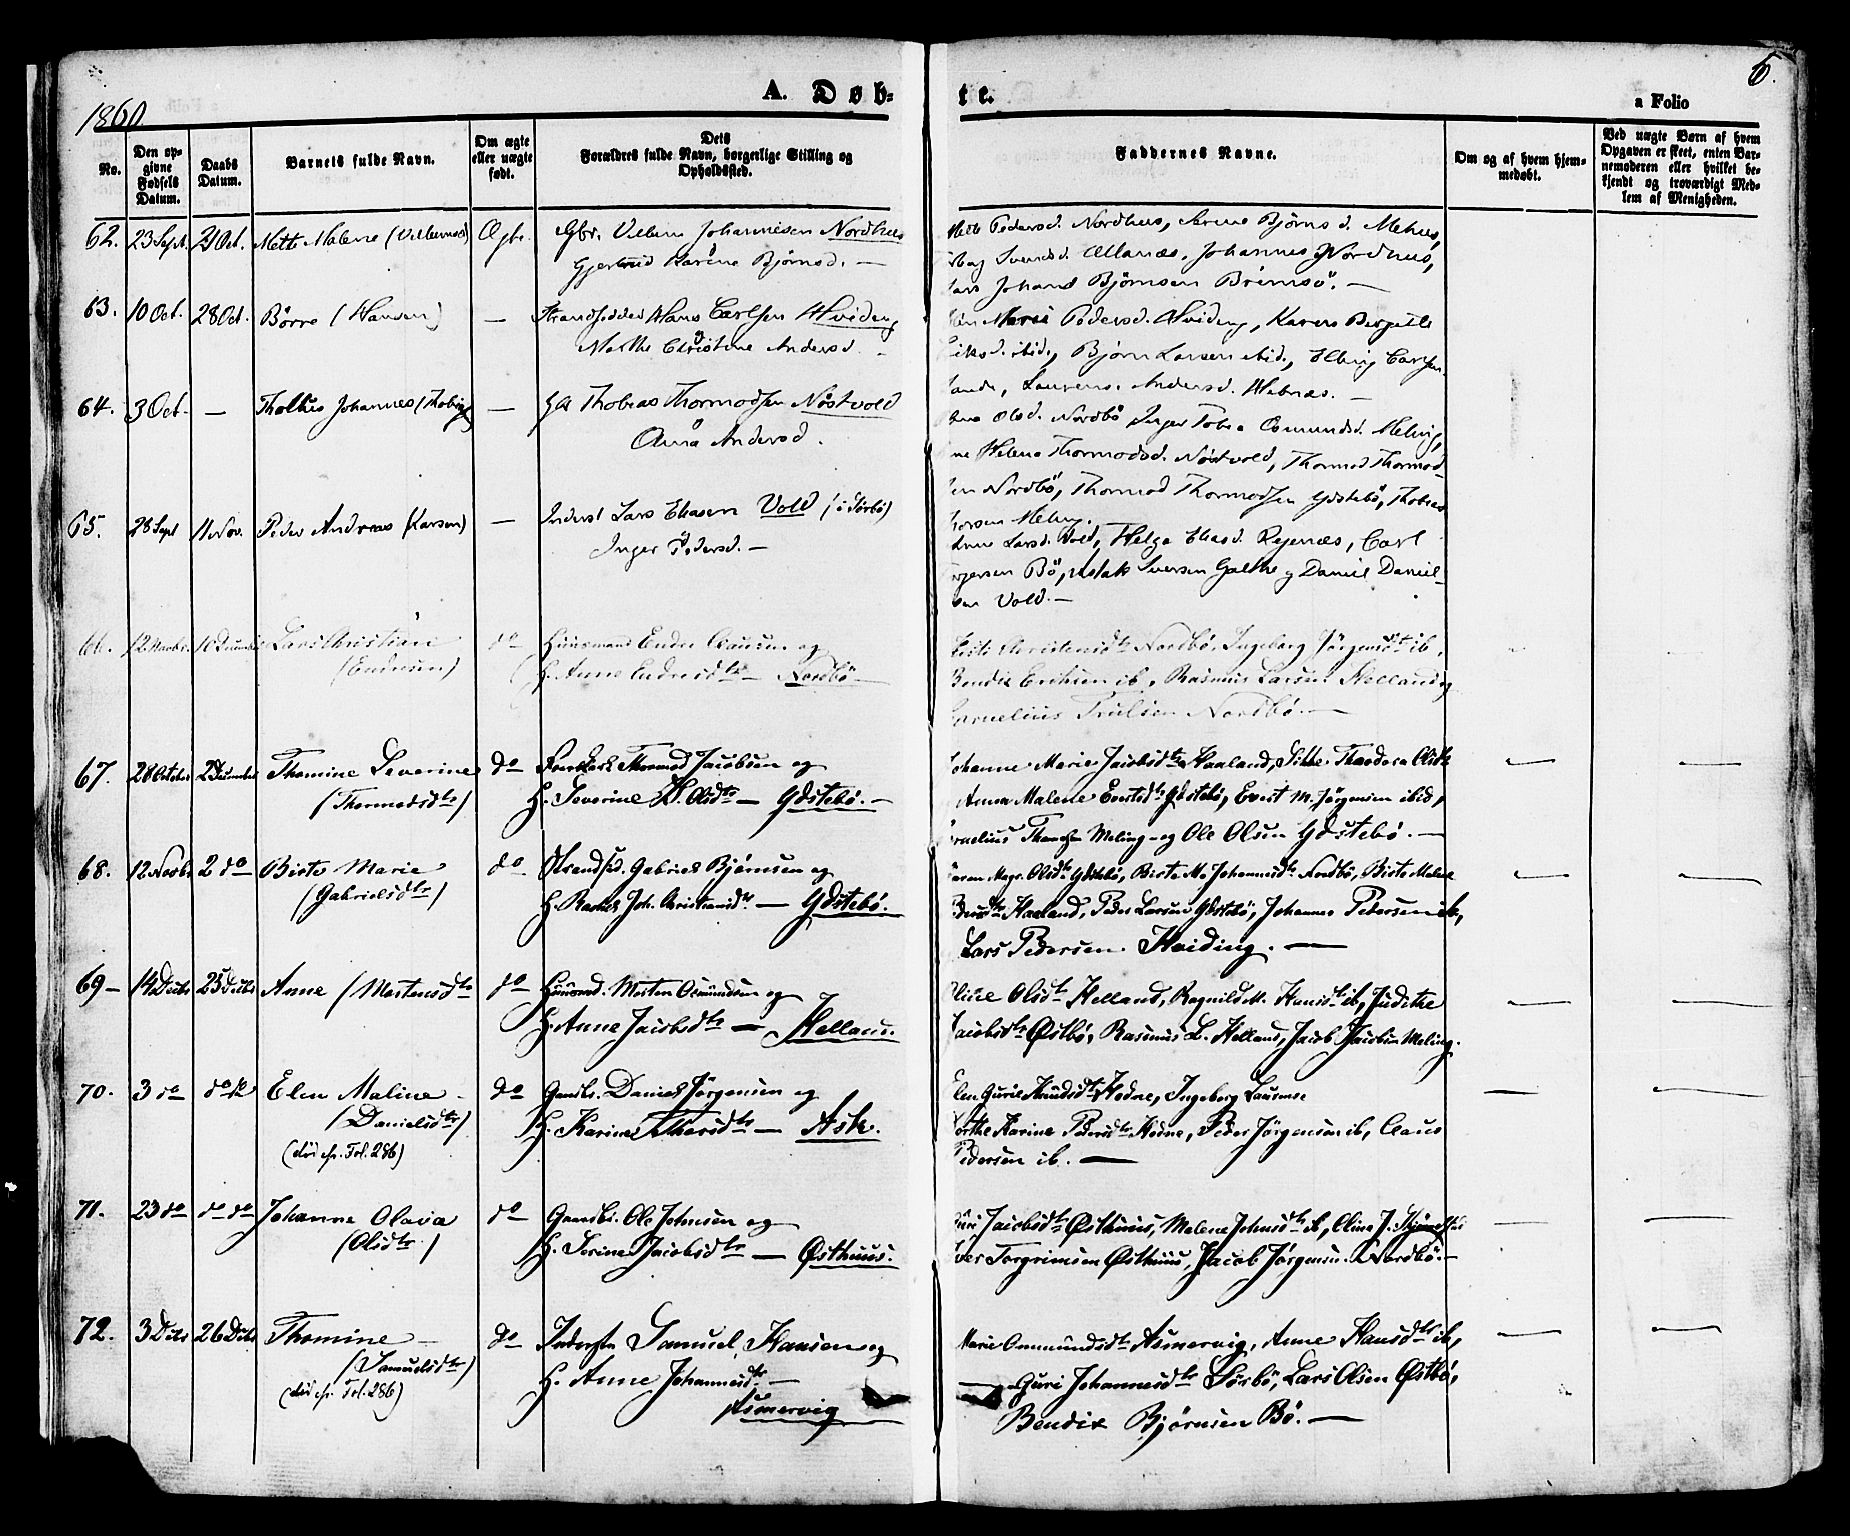 1860
A. Døb-
te.
5.
a Folio
No.
Den op-
givne
Fødsels
Datum.
Daabs
Datum.
Barnets fulde Navn.
Om ægte
eller uægte
født.
Dets
Forældres fulde Navn, borgerlige Stilling og
Opholdssted.
Faddernes Navne.
Om og af hvem hjem-
medøbt.
Ved uægte Børn af hvem
Opgaven er skeet, enten Bar-
nemoderen eller hvilket be-
kjendt og troværdigt Med-
lem af Menigheden.
62. 23 Sept. 21 Oct. Mette Malene (Villumsd) Ægte. Gbr. Villum Johannesen Nordhus
Gjertrud Karine Bjørnsd. —
Mette Pedersd. Nordhus, Serine Bjørnsd. Mehus,
Svendsd. Johannes Nordhus,
Lars Johand Bjørnsen Brimsö. —
63. 10 Oct. 28 Oct. Børre (Hansen) — Strandsidder Hans Carlsen Hviding
Marthe Christine Andersd. —
Marie Pedersd. Hviding, Karen Bergitte
ibid., Bjørn Larsen ibid., Elling Carlsen
Laurens Andersd. Habnæs. —
64. 3 Oct. — Johannes (Thobias) — Thobias Thormodsen Nöstvold
Anna Andersd.
Olsd. Nordbö Inger Tobia Osmundsd. Meling,
Helena Thormodsd. Nöstvold, Thormod Thormod-
sen Nordbö, Thormod Thormodsen Ydstebö, Thobias
Meling.
65. 28 Sept 11 Nov. Peder Andreas (Larsen) — Inderst Lars Eliasen Vold (i Sørbö)
Inger Pedersd. —
Larsd. Vold, Helga Eliasd. Rejenæs, Carl
Bö, Iversen Galthe og Daniel Daniel-
sen Vold. —
66. 12 Novbr. 10 Decembr Lars Christian
(Endresen) do Huusmand Endre Clausen og
H. Anne Endresdtr — Nordbö —
Christensdtr Nordbö, Ingeborg Jörgensdtr ib,
Bendix Eriksen ib, Rasmus Larsen Helland og
Cornelius Trulsen Nordbö. —
67. 28 October 2 December Thomine Severine
(Thormodsdtr) do Thormod Jacobsen og
H. Severine H. Olsdtr — Ydstebö. —
Johanne Marie Jacobsdtr Haaland, Sille Theodora Olsdtr
Anna Malene Evertsdtr Ydstebö, Evert M. Jörgensen ibid,
Cornelius Meling — og Ole Olsen Ydstebö. —
68. 12 Novbr 2 do Birte Marie
(Gabrielsdtr) do. Strandsid. Gabriel Bjørnsen og
H. Rachel Joh. Christiansdtr. — Ydstebö.
Karen Magr. Olsdtr Ydstebö, Birte M. Johannesdtr Nordbö, Birte Malene
Pedersdtr Haaland, Peder Larsen Ydstebö, Johannes Pedersen ib,
Lars Pedersen Hviding. —
69 — 14 Decbr 25 Decbr Anne (Mortensdtr do Huusmd. Morten Osmundsen og
H. Anne Jacobsdtr — Helland.
Olsdtr Helland, Ragnild M. Hansdtr ib, Judithe
Jacobsdtr Østbö, Rasmus L. Helland, Jacob Jacobsen Meling.
70. 3 do do do Elen Maline —
(Danielsdtr)
(död cfr. Fol. 286) do Gaardbr. Daniel Jørgensen og
H. Karine Thorsdtr — Ask.
Elen Gurie Knudsdtr Hodne, Ingeborg
Dorthe Karine Pedersdtr Hodne, Peder Jørgensen ib, Claus
Pedersen ib. —
71. 23 do do do Johanne Olava
(Olsdtr) do Gaardbr. Ole Johnsen og
H. Serine Jacobsdtr — Østhuus.
Guri Jacobsdtr Østhuus, Malene Johnsdtr ib, Elina J.
Iver Torgrimsen Østhuus, Jacob Jørgensen Nordbö. —
72. 3 Decbr 26 Decbr Thomine —
(Samuelsdtr)
(död cfr. Fol. 286) do Inderste Samuel Hansen og
H. Anne Johannesdtr —
Asmervig
Marie Ommundsdtr Asmervig, Anne Hansdtr ib,
— Guri Johannesdtr Sørbö, Lars Olsen Østbö,
Bendix Bjørnsen Bö. —